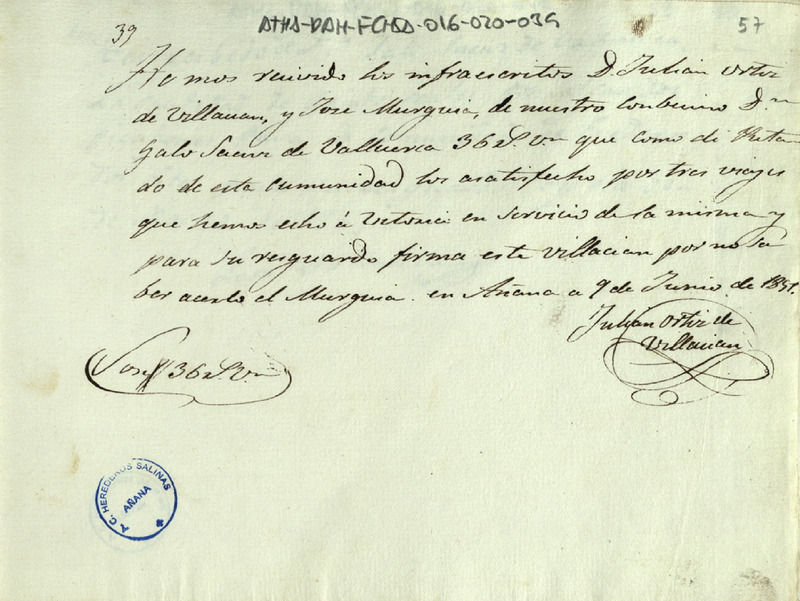 39
ATHA-DAH-FCHSA-016-020-039
57
Hemos recivido los infraescritos D. Julian Ortiz
de Villacian, y Jose Murguia, de nuestro combecino Dn
Galo Saenz de Valluerca 36 Rs. Vn que como di Puta
do de esta comunidad los asatisfecho por tres viajes
que hemos echo á Vitoria en servicio de la misma y
para su resguardo firma este Villacian por no sa
ber acerlo el Murguia. en Añana a 9 de Junio de 1851.
Julian Ortiz de
Villacian
Son 36 Rs. Vn
A. C. HEREDEROS SALINAS
AÑANA